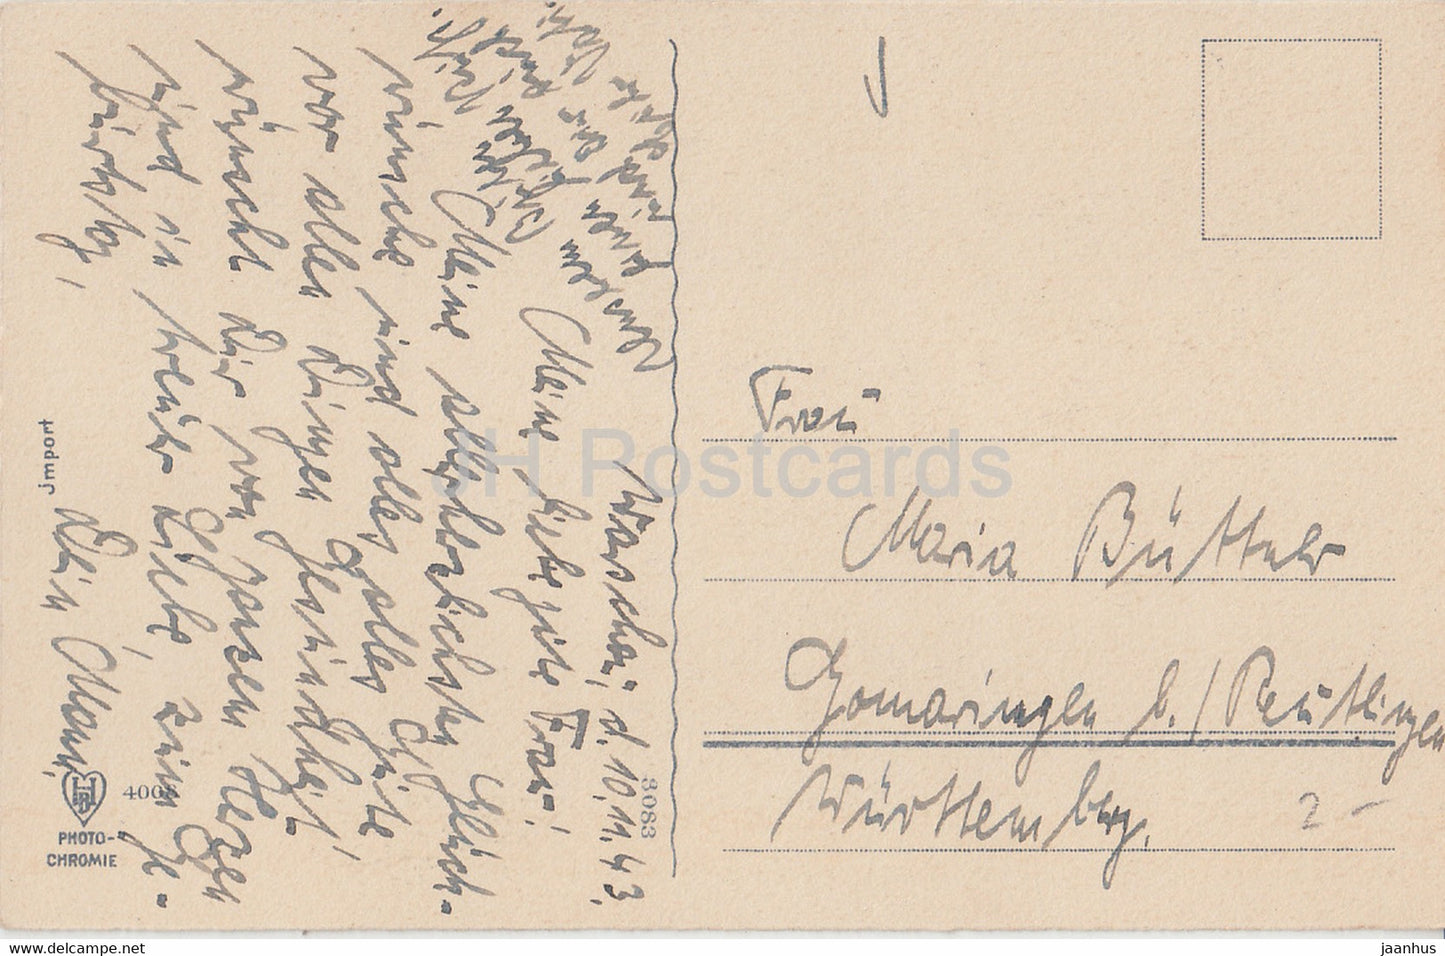 Warschau, d. 10.11.43.
Meine liebe gute Frau!
Meine allerherzlichsten Glück-
wünsche und alles alles Gute
vor allen Dingen Gesundheit,
wünscht Dir von ganzem Herzen
und in treuer Liebe, zum Ge-
burtstag,
Dein Mann.
Frau
Maria Büttner
Gomaringen b./Reutlingen
Württemberg.
2-
Jmport
4008
PHOTO-
CHROMIE
3083
JH Postcards
https://www.delcampe.net
jaanhus